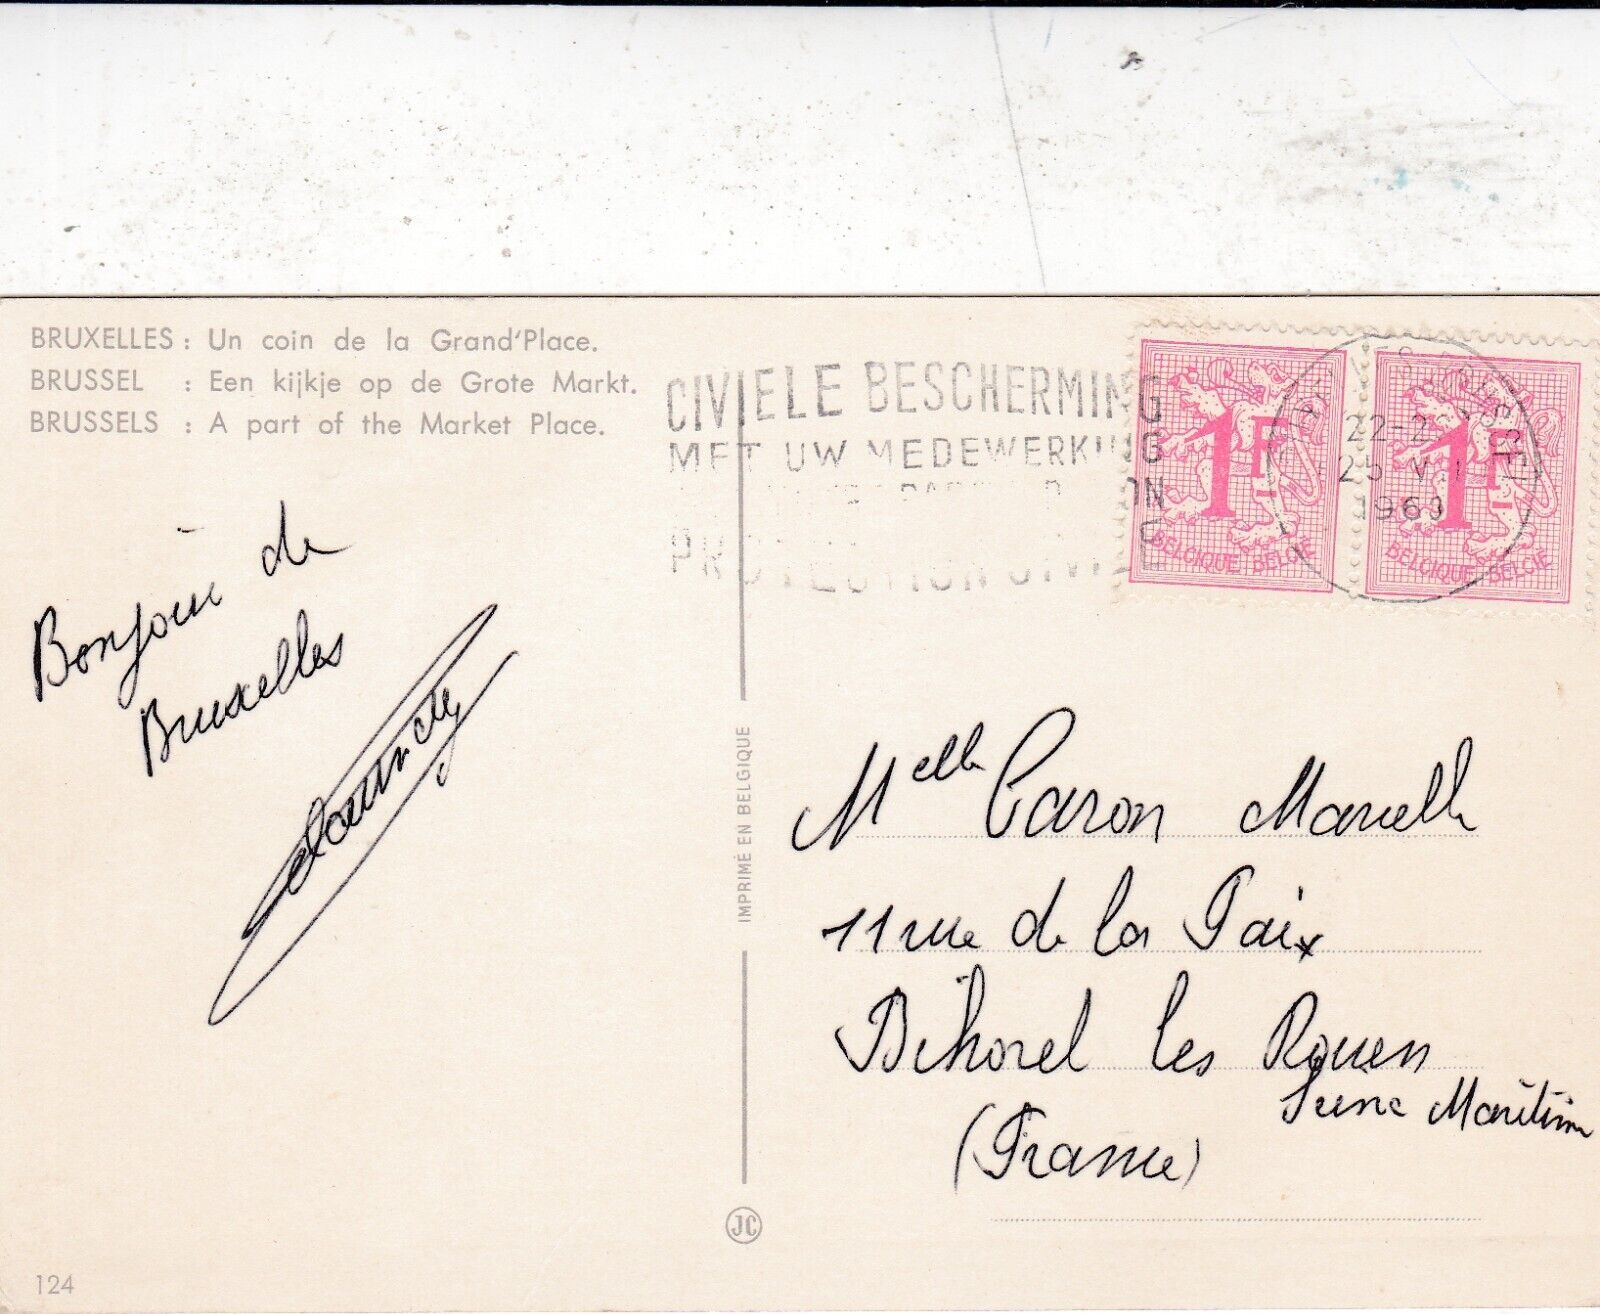 BRUXELLES : Un coin de la Grand'Place.
BRUSSEL : Een kijkje op de Grote Markt.
BRUSSELS : A part of the Market Place.
CIVIELE BESCHERMING
MET UW MEDEWERKING
PROTECTION CIVILE
1F
BELGIQUE BELGIË
1F
BELGIQUE BELGIË
25 VII
196
Bonjour de
Bruxelles
IMPRIMÉ EN BELGIQUE
Melle Caron Marcelle
11 rue de la Paix
Bihorel les Rouen
Seine Maritime
(France)
JC
124